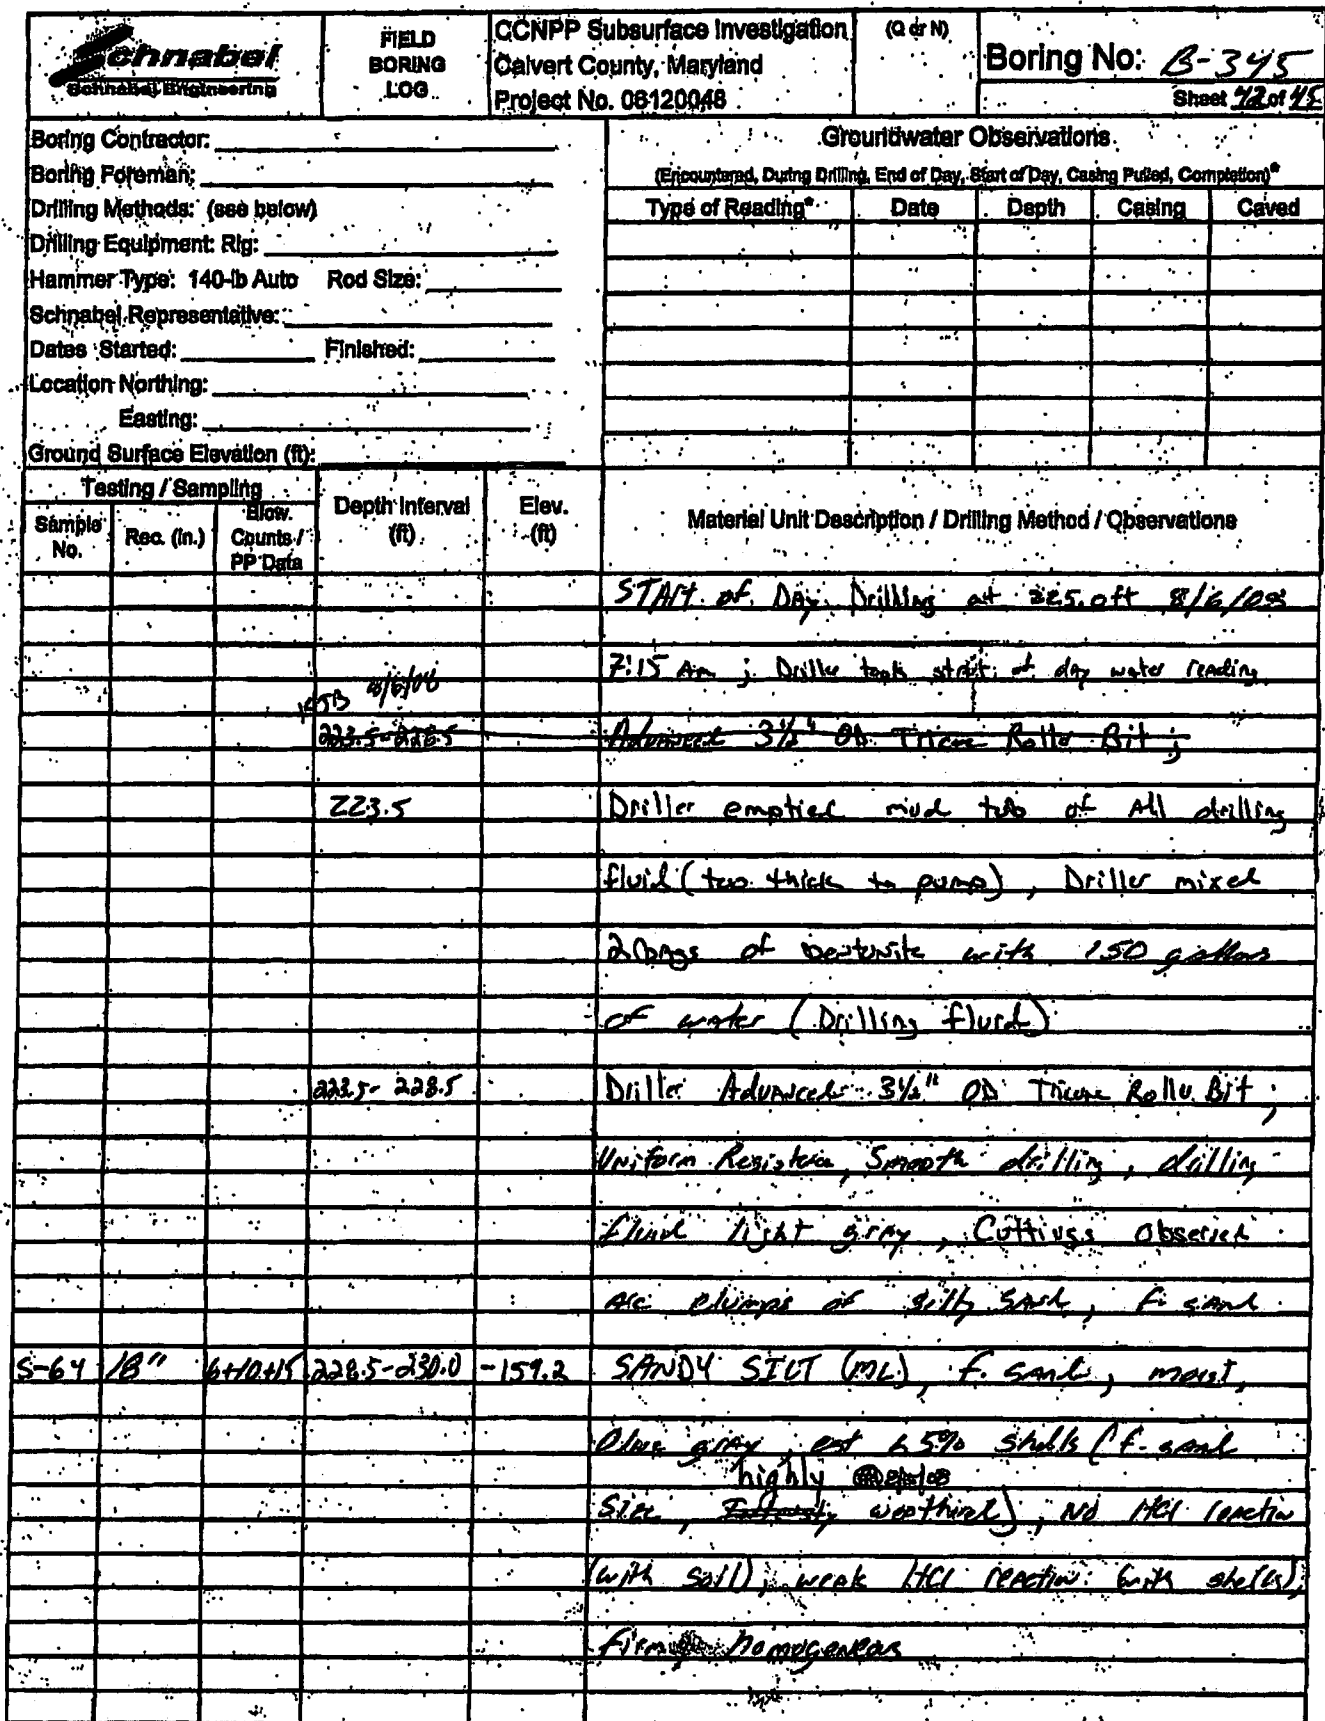 Schnabel
Schnabel Engineering
FIELD
BORING
LOG
CCNPP Subsurface Investigation
Calvert County, Maryland
Project No. 06120048
(Q or N)
Boring No: B-345
Sheet 42 of 45
Boring Contractor:
Boring Foreman:
Drilling Methods: (see below)
Drilling Equipment: Rig:
Hammer Type: 140-lb Auto Rod Size:
Schnabel Representative:
Dates Started: Finished:
Location Northing:
Easting:
Ground Surface Elevation (ft):
Groundwater Observations
(Encountered, During Drilling, End of Day, Start of Day, Casing Pulled, Completion)*
Type of Reading* Date Depth Casing Caved
Testing / Sampling
Sample No. Rec. (in.) Blow Counts / PP Data Depth Interval (ft) Elev. (ft) Material Unit Description / Drilling Method / Observations
START of DAY Drilling at 225.0ft 8/6/08
7:15 Am ; Driller took start of day water reading
8/6/08
223.5-228.5 Advanced 3½" OD Tricone Roller Bit;
223.5 Driller emptied mud tub of All drilling
fluid (too thick to pump), Driller mixed
2 bags of bentonite with 150 gallons
of water (Drilling fluid)
223.5- 228.5 Driller Advanced 3½" OD Tricone Roller Bit;
Uniform Resistance, Smooth drilling, drilling
fluid light gray, Cuttings Observed
are clumps of silty sand, f. sand
S-64 18" 6+10+15 228.5-230.0 -159.2 SANDY SILT (ML), f. sand, moist,
Olive gray, est <5% shells (f. sand
highly 8/6/08
size, weathered), No HCl reaction
(with soil), weak HCl reaction (with shells),
firm homogeneous